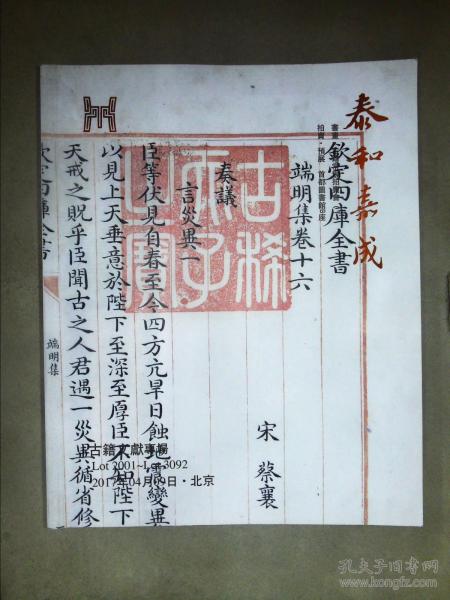 泰和嘉成
欽定四庫全書
端明集卷十六
宋 蔡襄
奏議
言災異一
臣等伏見自春至今四方亢旱日蝕地震變異
以見上天垂意於陛下至深至厚臣不知陛下
天戒之貺乎臣聞古之人君遇一災異循省修
欽定四庫全書
端明集
古稀天子之寶
古籍文獻專場
Lot 2001~Lot 3092
2017年04月09日·北京
孔夫子旧书网
www.kongfz.com